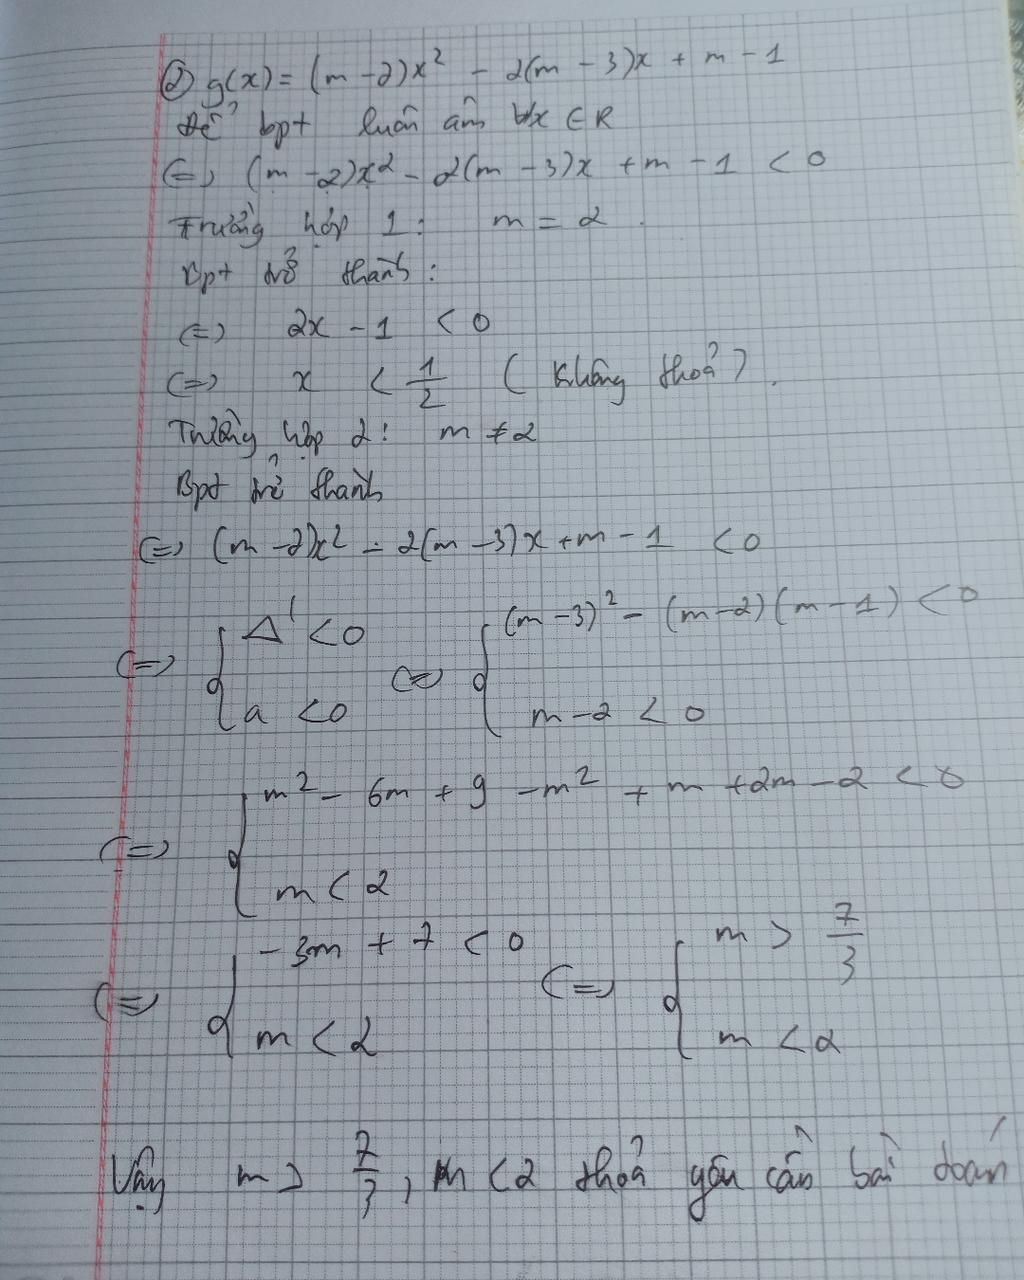 ② g(x) = (m - 2)x² - 2(m - 3)x + m - 1
Để bpt luôn âm ∀x ∈ R
(=) (m - 2)x² - 2(m - 3)x + m - 1 < 0
Trường hợp 1: m = 2.
Bpt trở thành:
(=) 2x - 1 < 0
(=) x < 1/2 (Không thoả).
Trường hợp 2: m ≠ 2
Bpt trở thành
(=) (m - 2)x² - 2(m - 3)x + m - 1 < 0
(=) { Δ' < 0 (=) { (m - 3)² - (m - 2)(m - 1) < 0
a < 0 m - 2 < 0
(=) { m² - 6m + 9 - m² + m + 2m - 2 < 0
m < 2
(=) { -3m + 7 < 0 (=) { m > 7/3
m < 2 m < 2
Vậy m > 7/3, m < 2 thoả yêu cầu bài toán